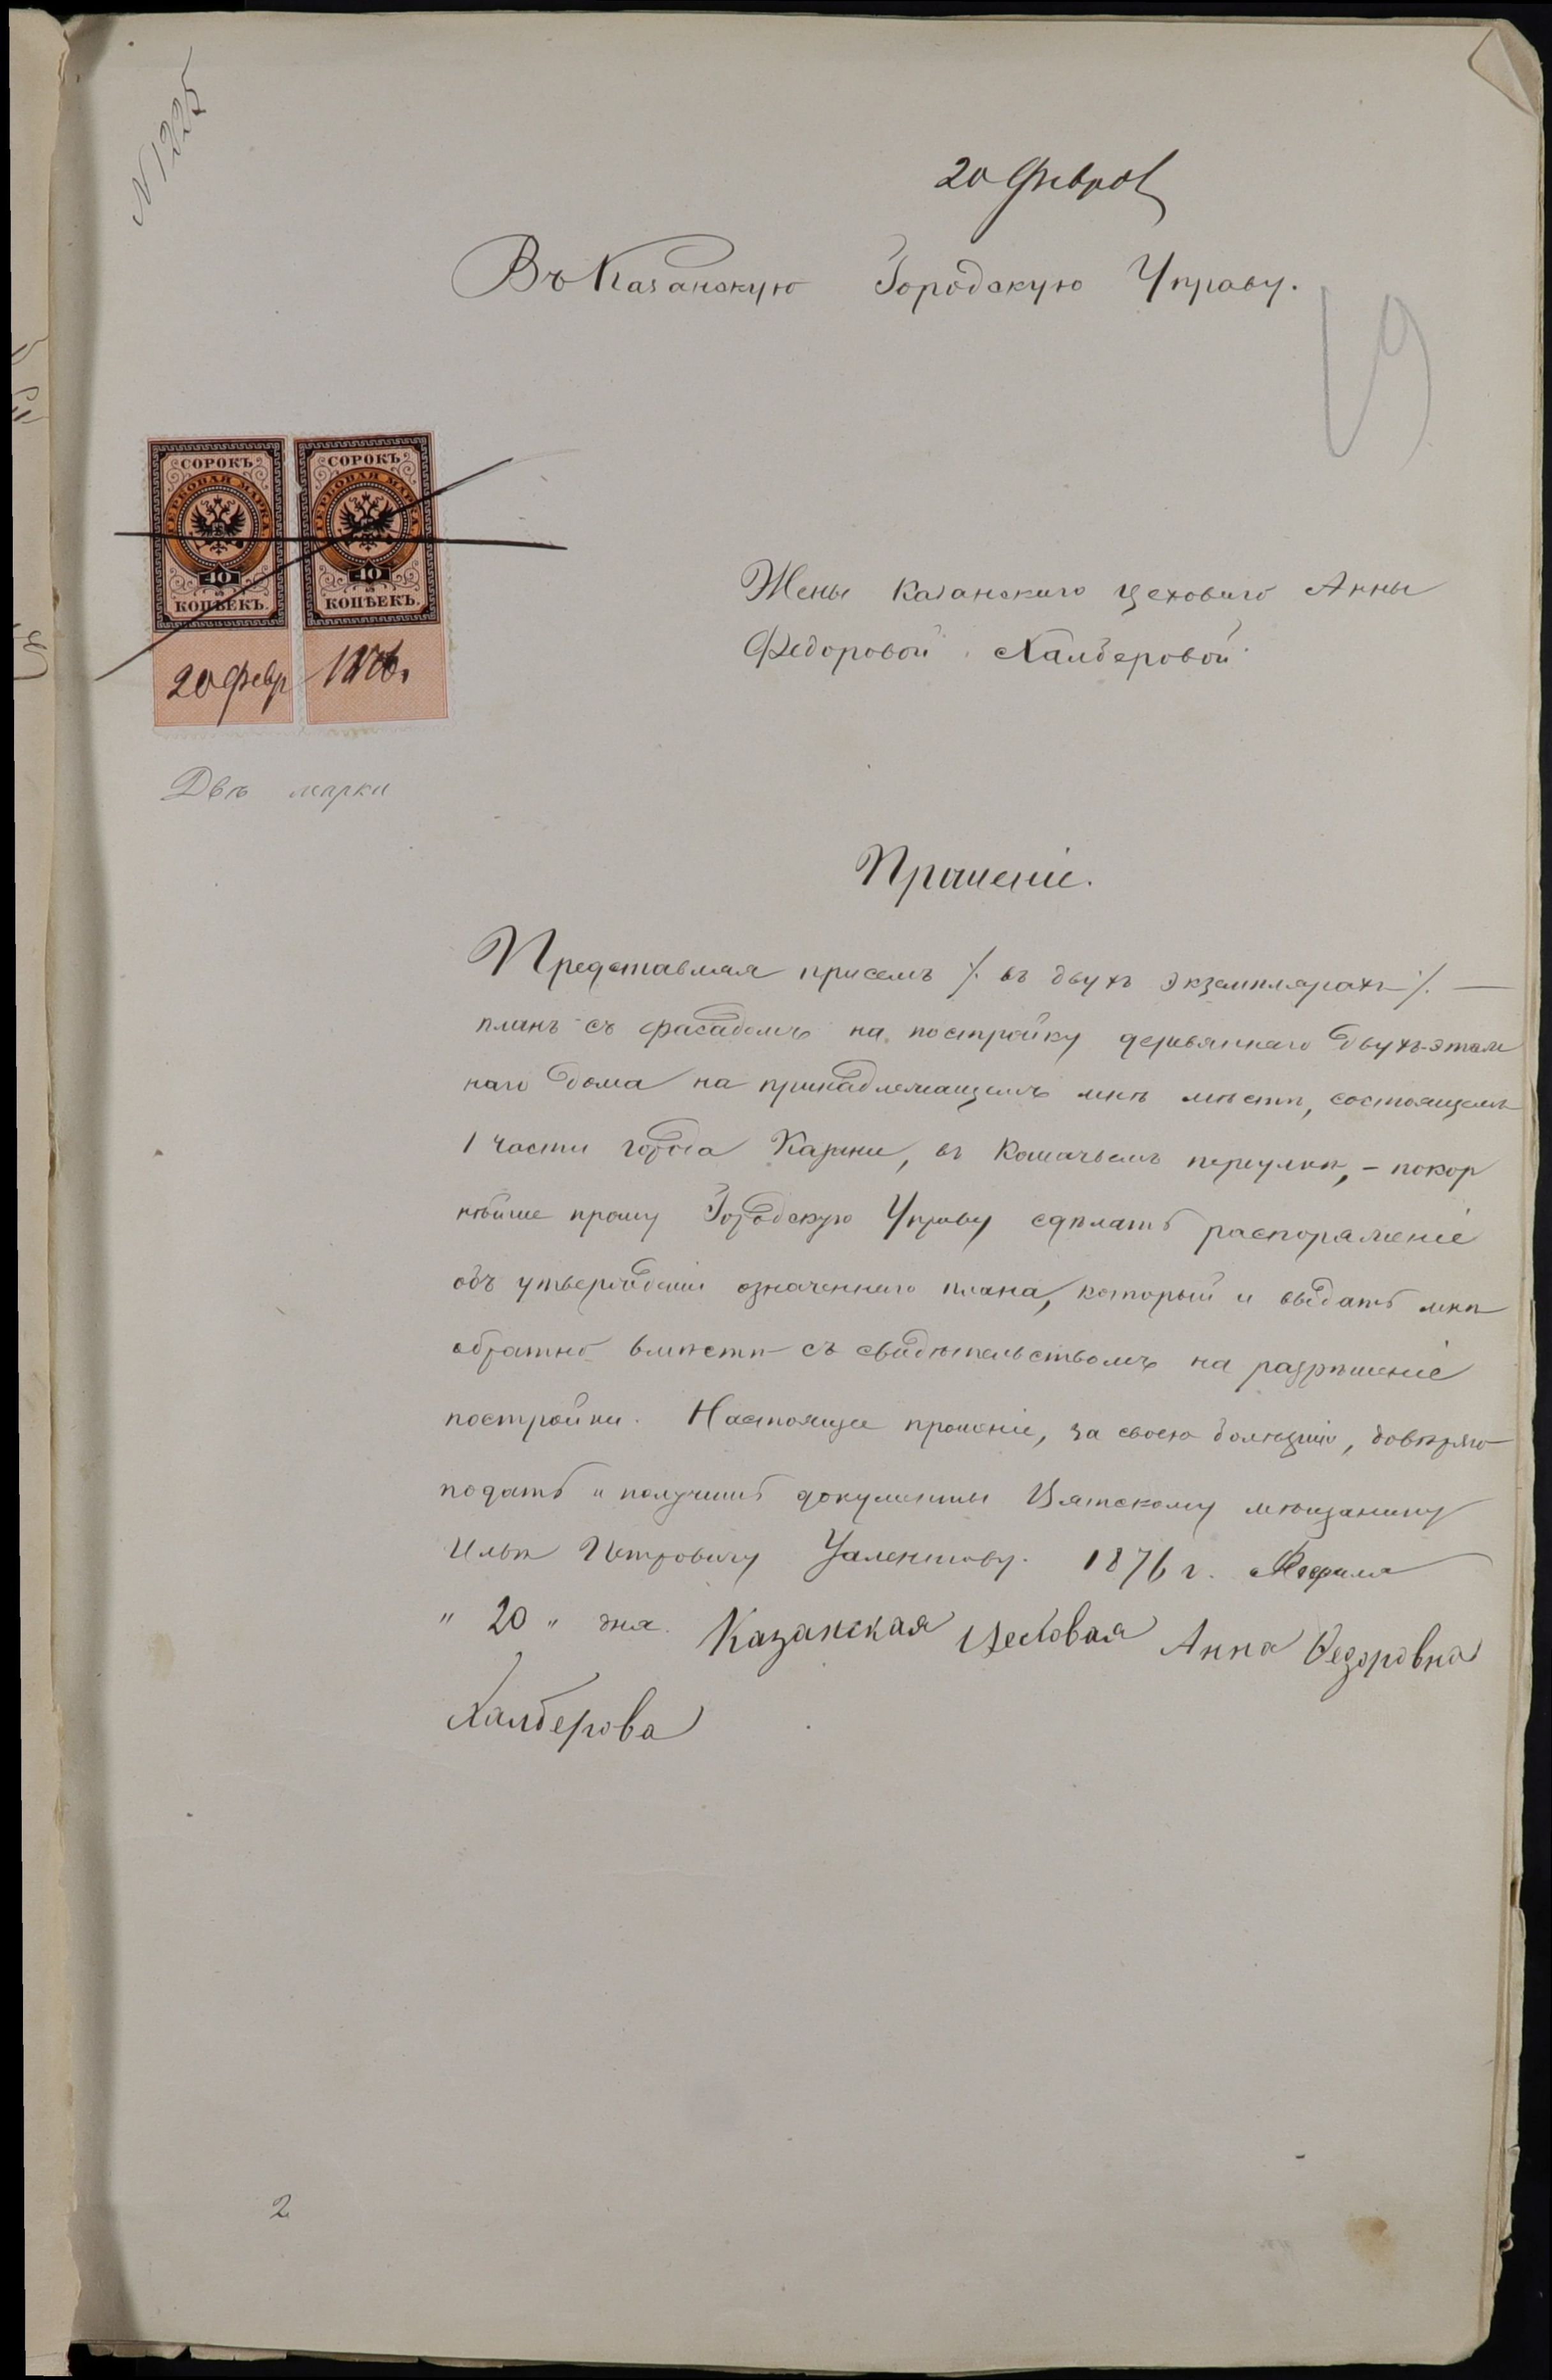 N 1225
20 Феврал
Въ Казанскую Городскую Управу.
19
СОРОКЪ СОРОКЪ
ГЕРБОВАЯ МАРКА ГЕРБОВАЯ МАРКА
40 40
КОПѢЕКЪ. КОПѢЕКЪ.
20 февр 1876.
Двѣ марки
Жены Казанскаго цеховаго Анны
Федоровой Халдеровой
Прошеніе.
Представляя присемъ ⁒ въ двухъ экземплярахъ ⁒ —
планъ съ фасадомъ на постройку деревяннаго двухъ-этаж
наго дома на принадлежащемъ мнѣ мѣстѣ, состоящемъ
1 части города Казани, въ Кошачьемъ переулкѣ, – покор
нѣйше прошу Городскую Управу сдѣлать распоряженіе
объ утвержденіи означеннаго плана, который и выдать мнѣ
обратно вмѣстѣ съ свидѣтельствомъ на разрѣшеніе
постройки. Настоящее прошеніе, за своею болезнію, довѣряю
подать и получить документы Вятскому мѣщанину
Ильѣ Петровичу 1876 г. Февраля
" 20 " дня. Казанская Цеховая Анна Федоровна
Халдерова
2